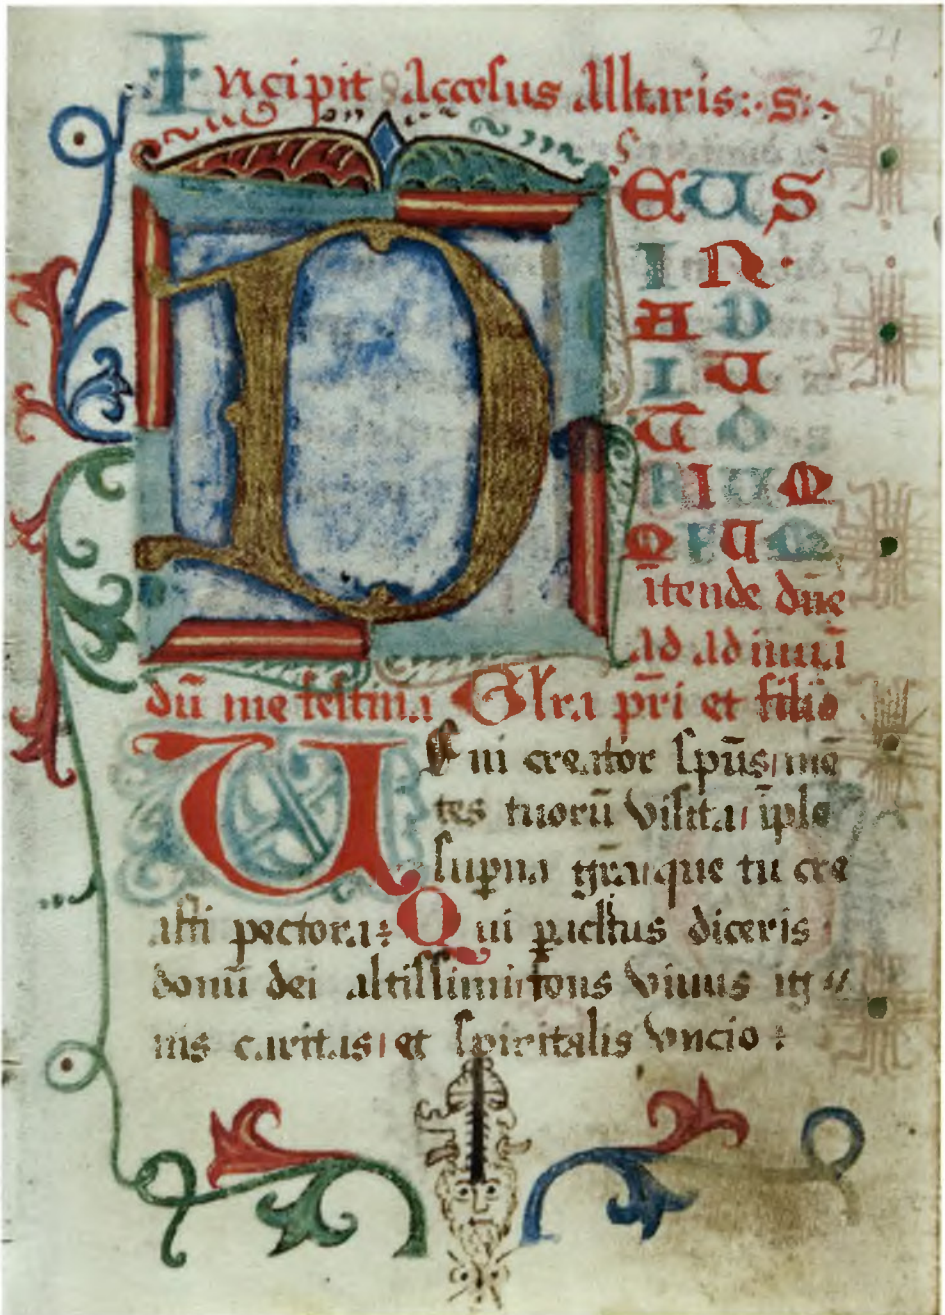 21
Incipit Accesus Alltaris:·S:~
DEUS
IN·
AD
IU
TO
RIUM
MEUM
ītende dn̄e
ad adiuuā
dū me festina Glr̄a pr̄i et filio
Ueni creator sp̄us/me
tes tuorū visita/īple
sup̄na gr̄a/que tu cre
asti pectora: Qui p̲aclitus diceris
donū dei altissimi/fons viuus ig〃
nis caritas/et spiritalis vncio: